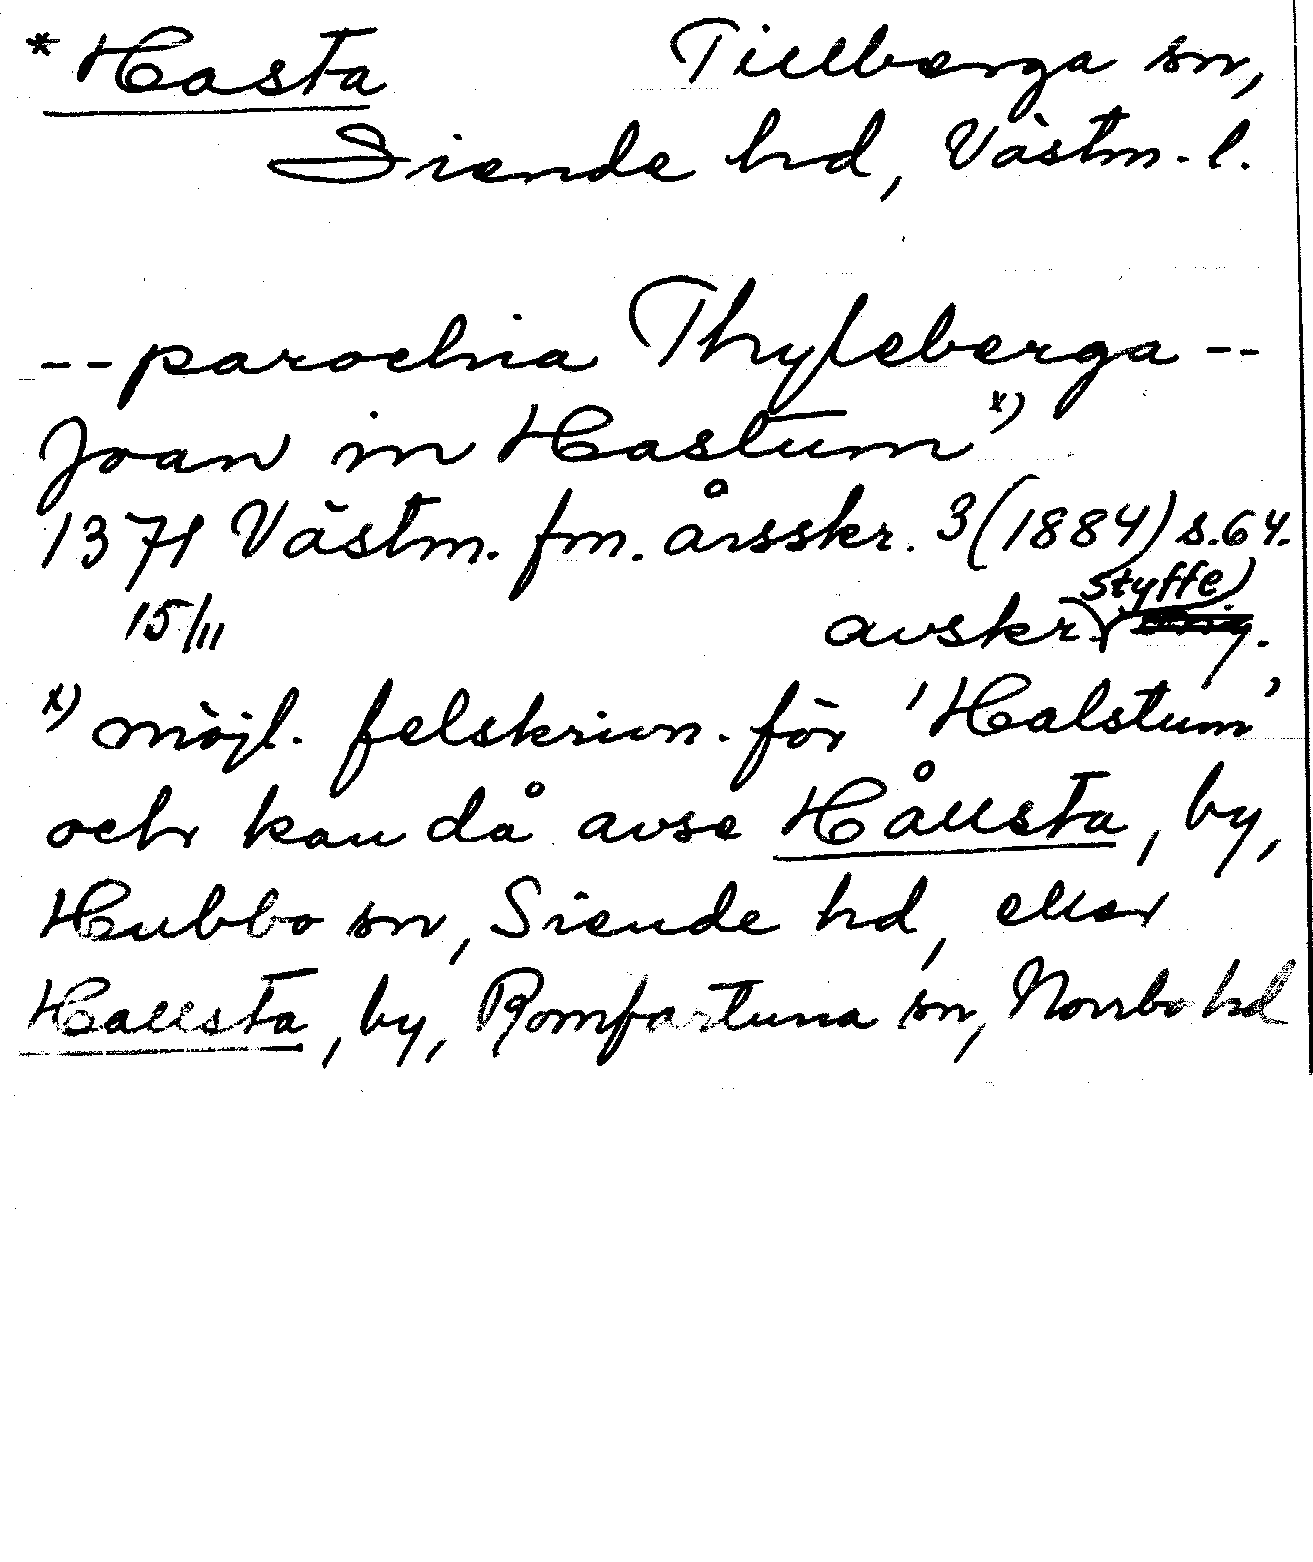 * Hasta Tillberga sn,
Siende hd, Västm. l.
-- parochia Thyleberga --
Joan in Hastum x)
1371 Västm. fm. årsskr. 3 (1884) s. 64.
15/11 avskr. (Styffe)
x) möjl. felskrivn. för 'Halstum',
och kan då avse Hållsta, by,
Hubbo sn, Siende hd, eller
Hallsta, by, Romfartuna sn, Norrbo hd